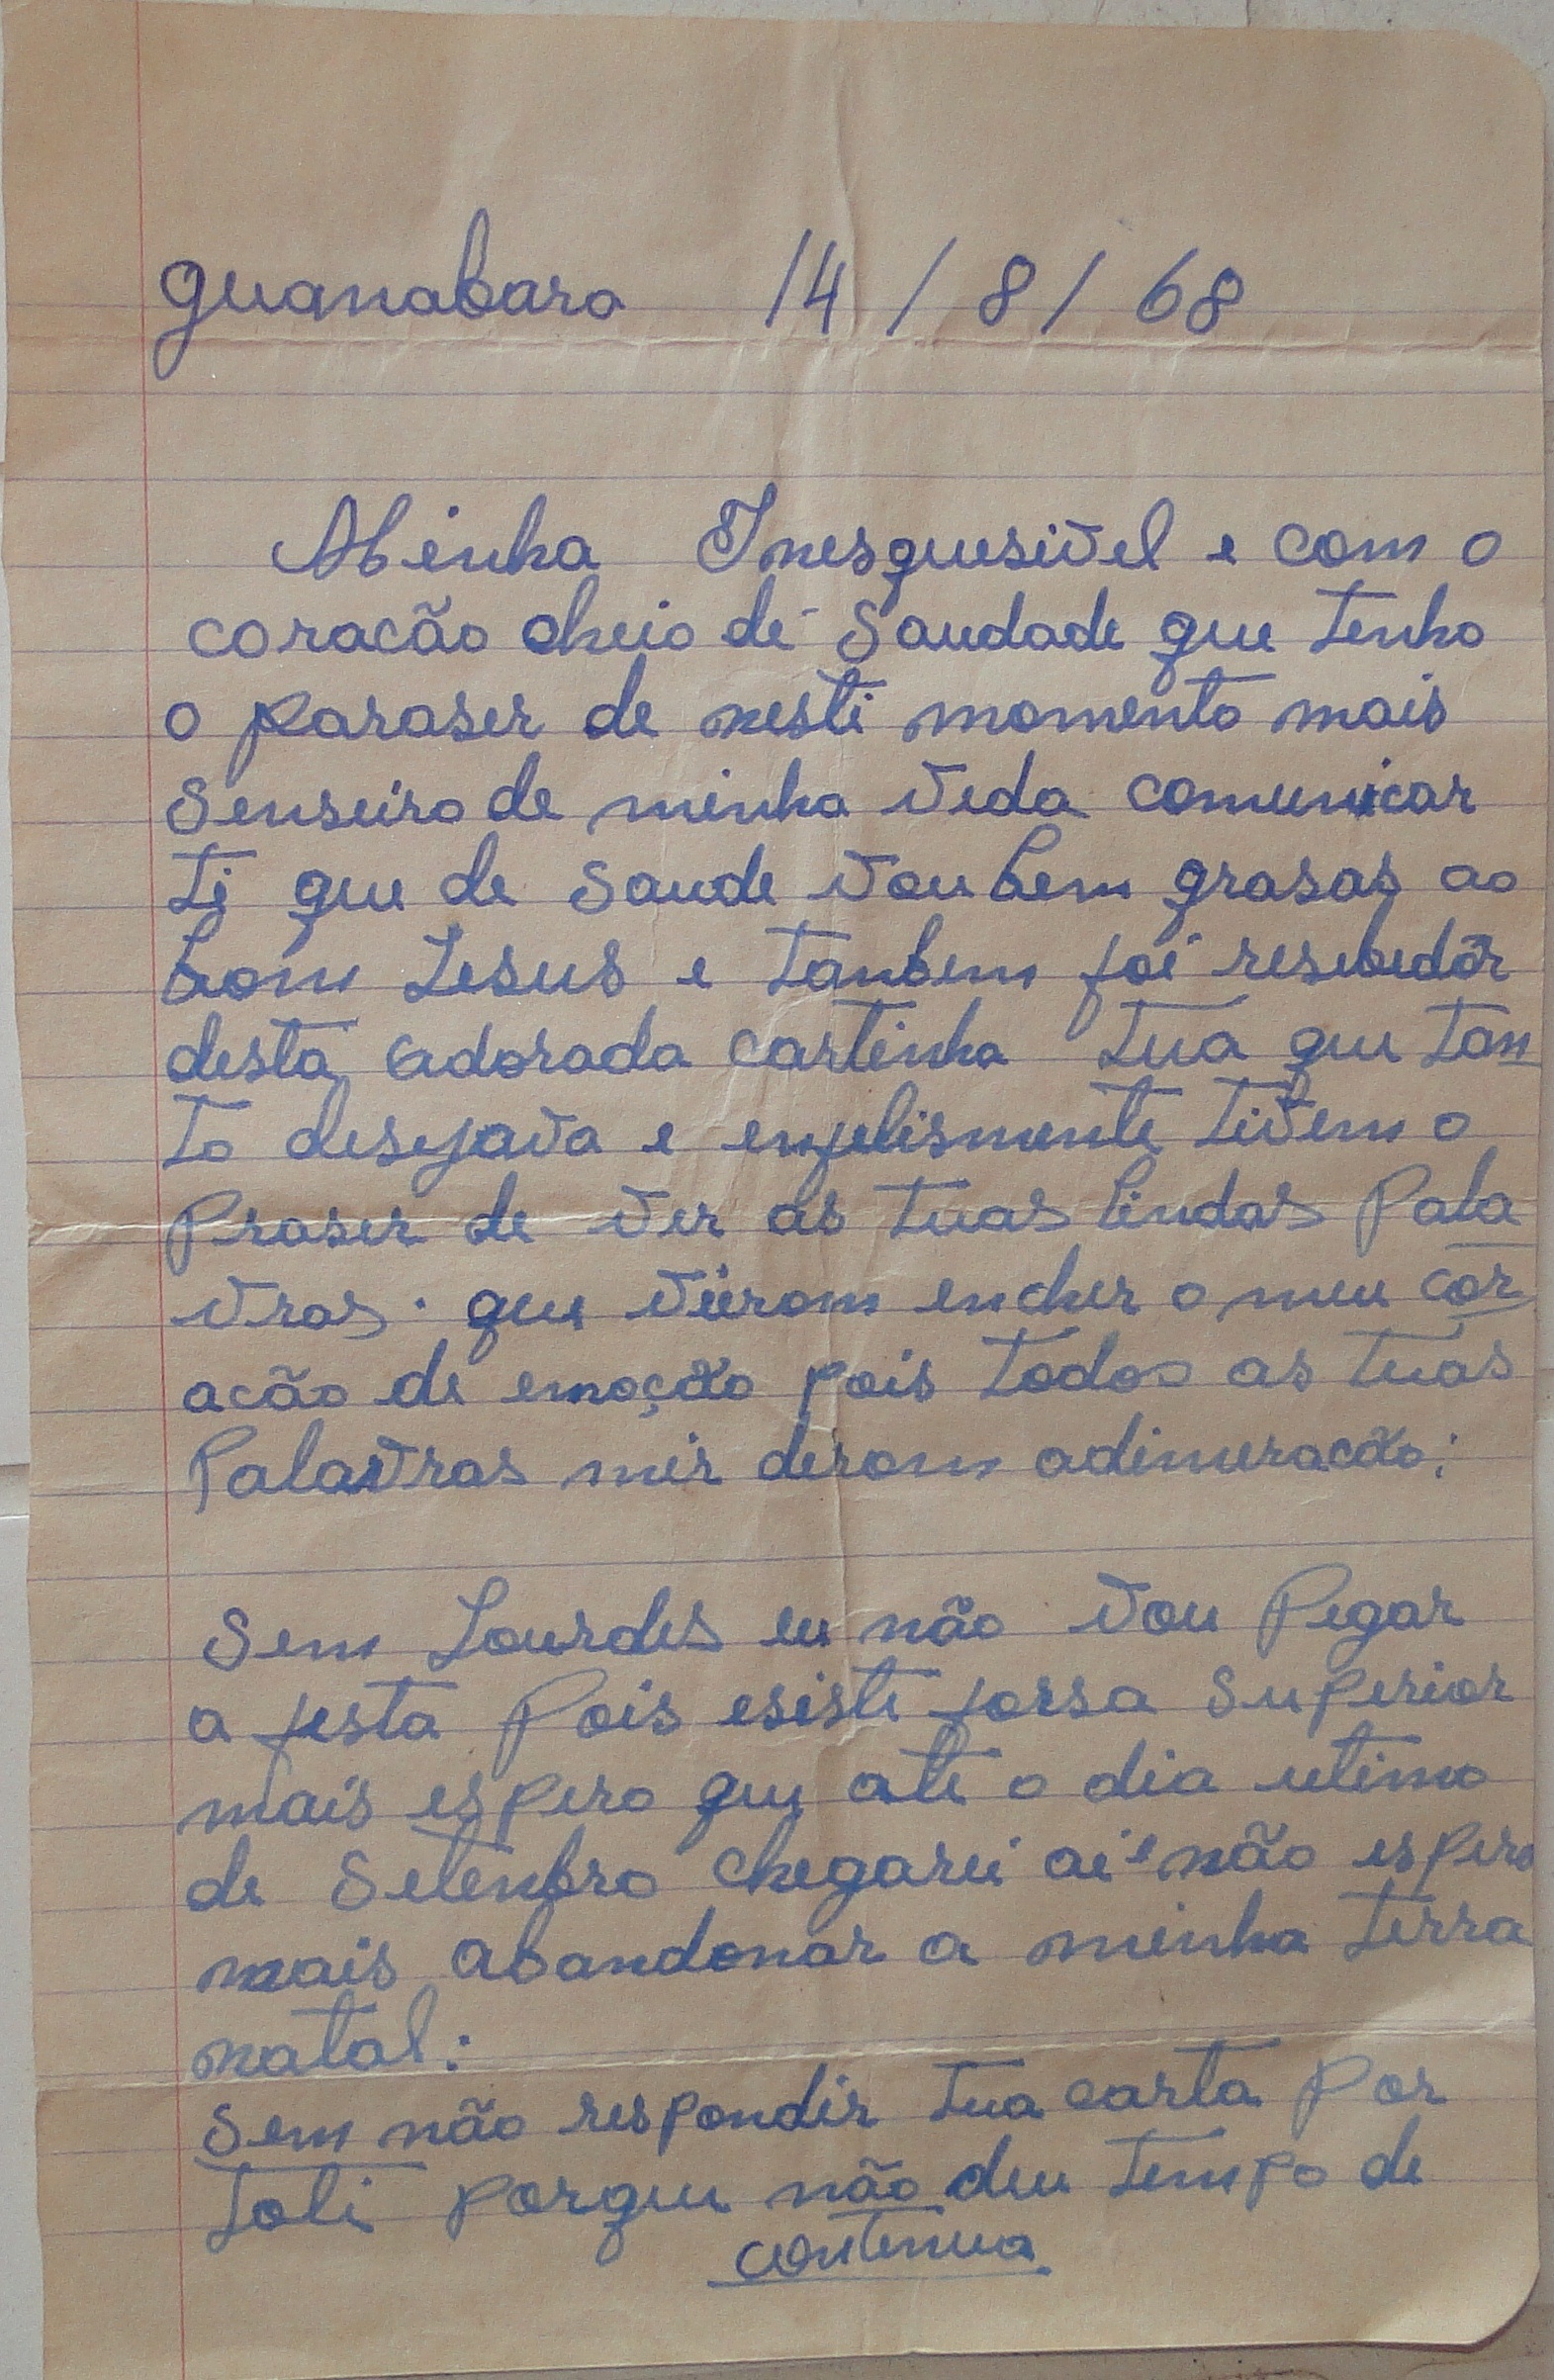 guanabara 14 / 8 / 68
Minha Inesquesivel e com o
coracão cheio de saudade que tenho
o paraser de nesti momento mais
senseiro de minha vida comunicar
ti que de saude vou bem grasas ao
bom Jesus e tanbem foi resebedor
desta adorada cartinha tua que tan
to desejava e enfelismente tivem o
praser de ver as tuas lindas pala
vras. que vierom encher o meu cor
acão de emoção pois todas as tuas
Palavras mir derom adimiracão:
Sem Lourdes eu não vou Pegar
a festa pois esiste forsa superior
mais espero que ate o dia utimo
de Setenbro chegarei ai e não espero
mais abandonar a minha terra
natal:
Sem não respondir tua carta por
toli porque não deu tempo de
continua